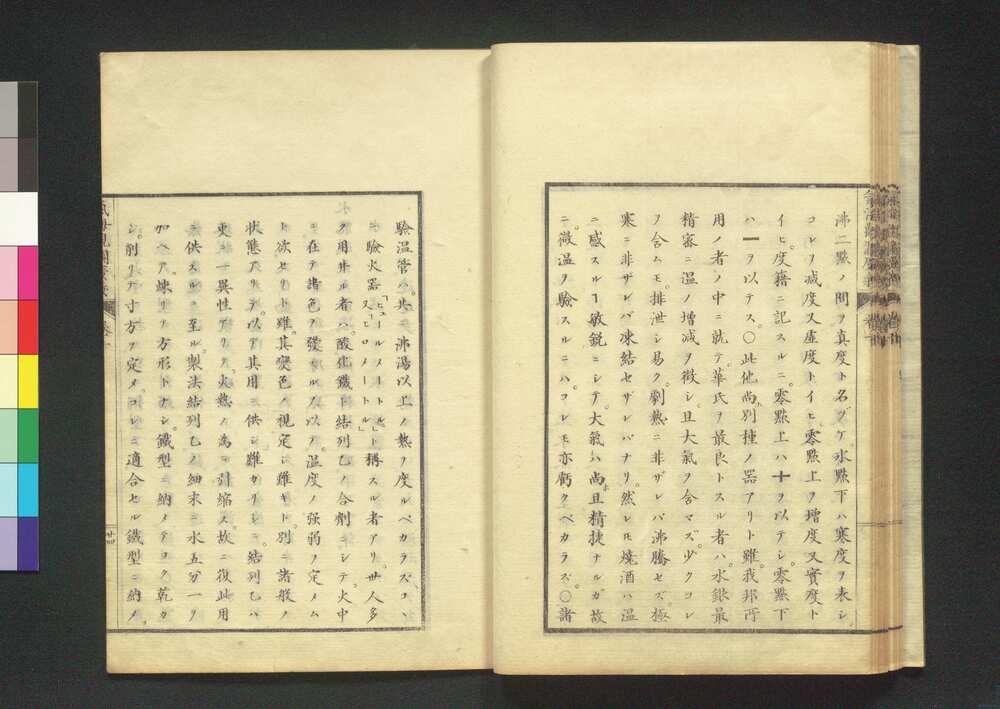 沸二點ノ間ヲ眞度ト名ヅケ氷點下ハ寒度ヲ表シ
コレヲ減度又虚度トイヒ零點上ヲ增度又實度ト
イヒ。度籍ニ記スルニ。零點上ハ十ヲ以テシ。零點下
ハ一ヲ以テス。〇此他尚別種ノ器アリト雖我邦所
用ノ者ノ中ニ就テ華氏ヲ最良トスル者ハ。水銀最
精審ニ温ノ增減ヲ徵シ。且大氣ヲ含マズ。少クコレ
ヲ含ムモ。排泄シ易ク。劇熱ニ非ザレバ沸騰セズ極
寒ニ非ザレバ凍結セザレバナリ。然レモ燒酒ハ温
ニ感スルヿ敏銳ニシテ。大氣ハ尚且精捷ナルガ故
ニ。微温ヲ驗スルニハ。コレモ亦虧クベカラズ。〇諸
驗温管ハ。共ニ沸湯以上ノ熱ヲ度ルベカラズ。コヽ
ニ驗火器「ヒユールメートル」又「ピロメートル」ト稱スル者アリ。世人多
ク用井ル者ハ。酸化鐵ト結列乙ノ合劑ニシテ。火中
ニ在テ諸色ヲ發スルヲ以テ。温度ノ强弱ヲ定メム
ト欲セリト雖。其變色ノ視定シ難キト。別ニ諸般ノ
状態アリテ。以テ其用ニ供シ難カリシニ。結列乙ハ
更ニ一異性アリテ。火熱ノ為ニ弆縮ス。故ニ復此用
ニ供スルニ至ル。製法結列乙ノ細末ニ水五分一ヲ
加ヘテ。煉リテ方形トナシ。鐵型ニ納メテコク乾カ
シ。削リテ寸方ヲ定メ。コレニ適合セル鐵型ニ納メ
廿四